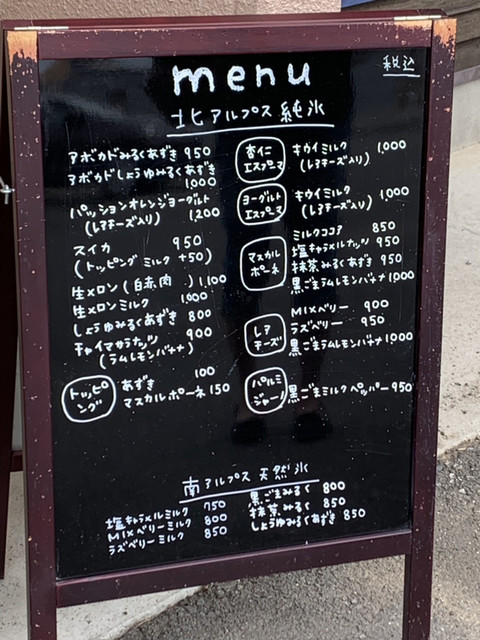 menu
税込
北アルプス純氷
アボカドみるくあずき 950
アボカドしょうゆみるくあずき
1,000
パッションオレンジヨーグルト
(レアチーズ入り) 1,200
スイカ 950
(トッピング ミルク +50)
生メロン(白赤肉 ) 1,100
生メロンミルク 1,000
しょうゆみるくあずき 800
チャイマサラナッツ 900
(ラムレモンバナナ)
トッピング
あずき 100
マスカルポーネ 150
杏仁
エスプーマ
キウイミルク 1,000
(レアチーズ入り)
ヨーグルト
エスプーマ
キウイミルク 1,000
(レアチーズ入り)
マスカル
ポーネ
ミルクココア 850
塩キャラメルナッツ 950
抹茶みるくあずき 950
黒ごまラムレモンバナナ 1,000
レア
チーズ
MIXベリー 900
ラズベリー 950
黒ごまラムレモンバナナ 1,000
パルミ
ジャーノ
黒ごまミルクペッパー 950
南アルプス天然氷
塩キャラメルミルク 750
MIXベリーミルク 800
ラズベリーミルク 850
黒ごまみるく 800
抹茶みるく 850
しょうゆみるくあずき 850